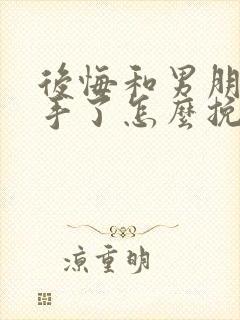 後悔和男朋
手了怎麼挽
涼重明